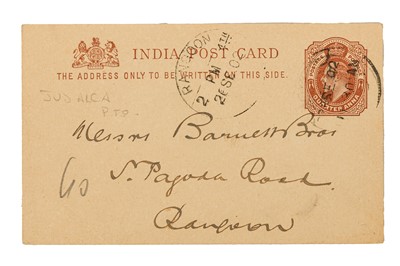 INDIA POST CARD
THE ADDRESS ONLY TO BE WRITTEN ON THIS SIDE.
RANGOON 4TH
2 PM
26 SE 02
QUARTER ANNA
SE 02
JUDAICA
P.T.O
Messrs Barnett Bros
60
St. Pagoda Road.
Rangoon